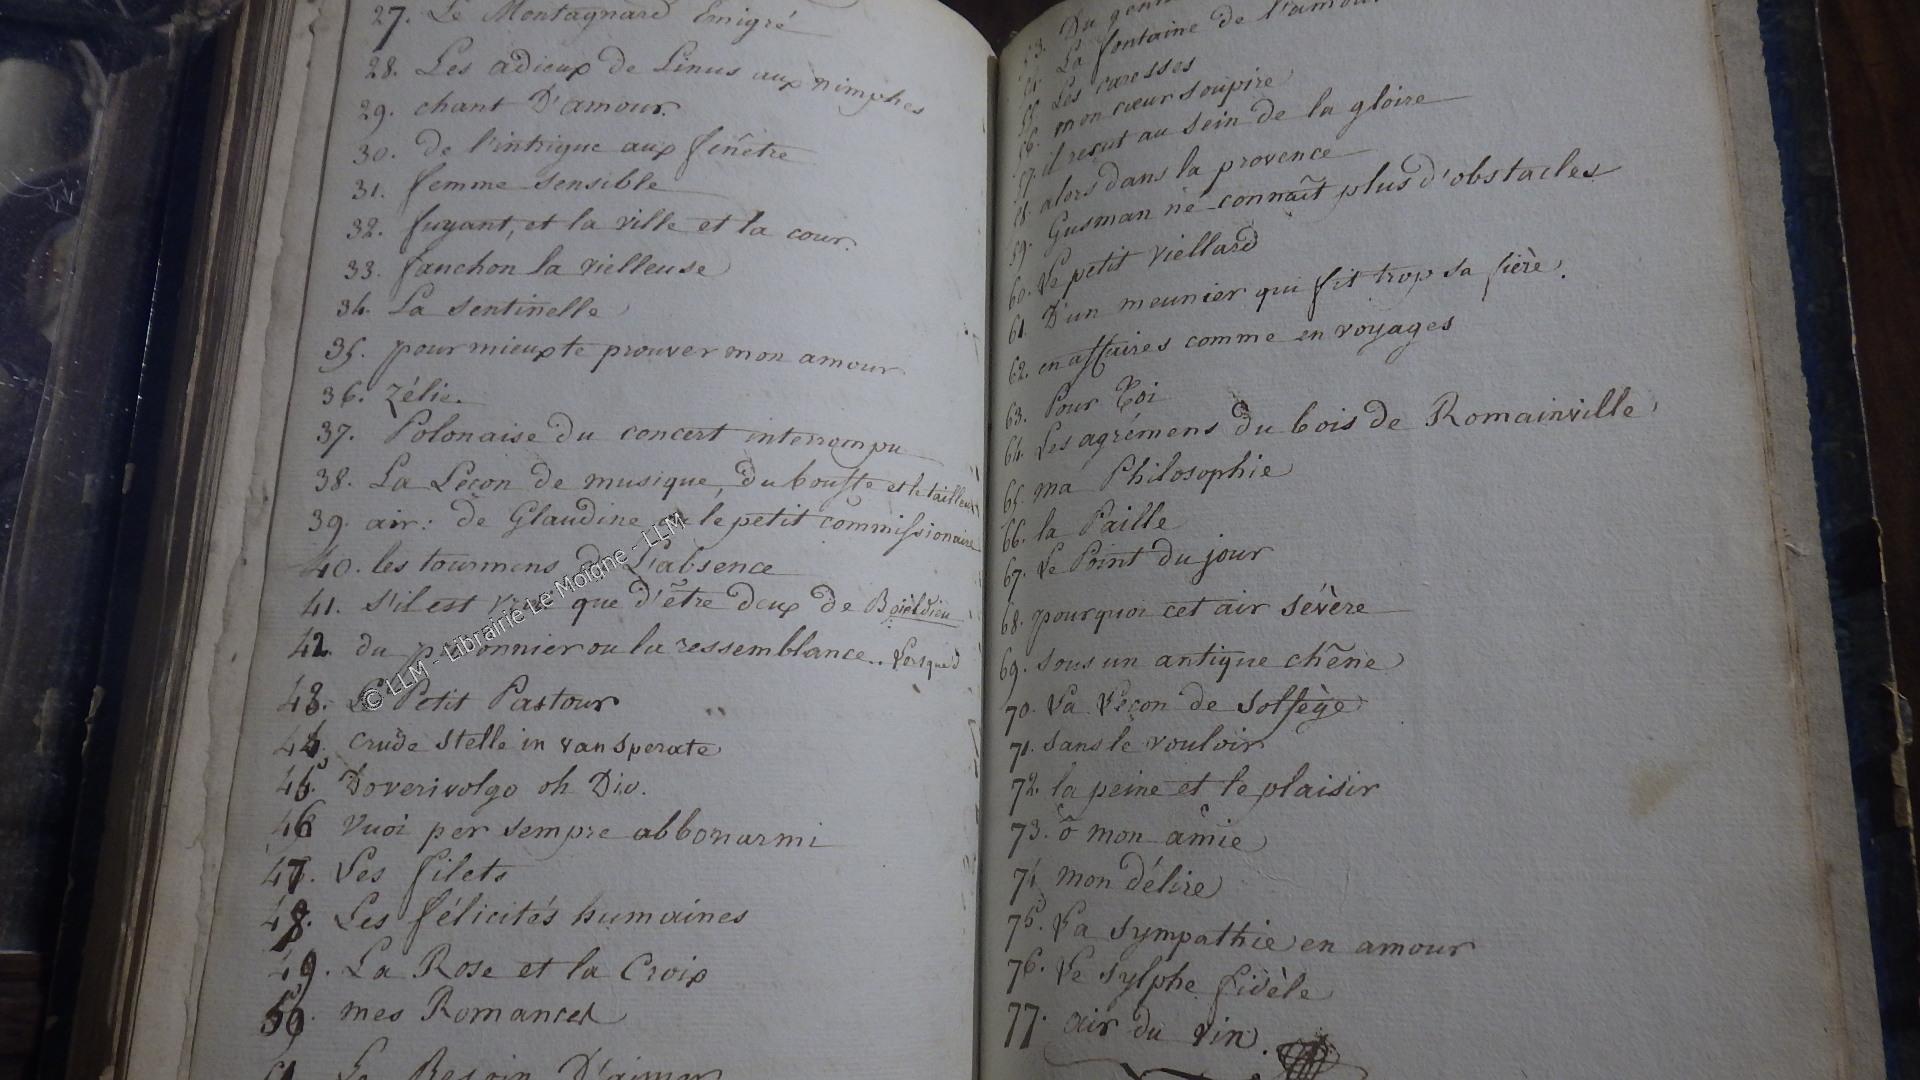 27. Le Montagnard Emigré
28. Les adieux de Linus aux nimphes
29. chant D'amour.
30. de l'intrigue aux fênêtre
31. femme sensible
32. fuyant, et la ville et la cour.
33. fanchon la vielleuse
34. La Sentinelle
35. pour mieux te prouver mon amour
36. Zélie.
37. Polonaise du concert interrompu
38. La Leçon de musique, du bouffe et le tailleur
39. air: de Glaudine ou le petit commissionaire
40. les tourmens de L'absence
41. S'il est vrai que d'être deux de Boieldieu
42. du prisonnier ou la ressemblance.. Lorsque d
43. Le Petit Pastour
44. crude stelle in van sperate
45. Doverivolgo oh Dio.
46 Vuoi per sempre abbonarmi
47. Les filets
48. Les félicités humaines
49. La Rose et la Croix
50. mes Romances
51 Le Besoin D'aimer
53. Du
54. La fontaine de l'amour
55. Les caresses
56. mon cœur soupire
57. il reçut au sein de la gloire
58. alors dans la provence
59. Gusman ne connaît plus d'obstacles
60. Le petit viellard
61. D'un meunier qui fit trop sa fière.
62. en affaires comme en voyages
63. Pour Toi
64. Les agrémens du bois de Romainville
65. ma Philosophie
66. la Paille
67. Le Point du jour
68. pourquoi cet air sévère
69. Sous un antique chêne
70. La Leçon de Solfège
71. Sans le vouloir
72. la peine et le plaisir
73. ô mon âmie
74 mon délire
75. La Sympathie en amour
76. Le Sylphe fidèle
77. air du vin.
© LLM - Librairie Le Moigne - LLM